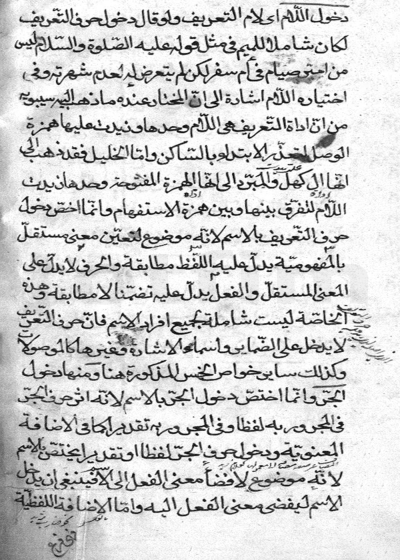 دخول اللام اى لام التعريف ولو قال دخول حرف التعريف
لكان شاملا للميم فى مثل قوله عليه الصلوة والسلام ليس
من امبر صيام فى أم سفر لكن لم يتعرض له لعدم شهرته وفى
اختياره اللام اشارة الى ان المختار عنده ما ذهب اليه سيبويه
من ان اداة التعريف هى اللام وحدها زيدت عليها همزة
الوصل لتعذر الابتداء بالساكن واما الخليل فقد ذهب الى
انها ال كهل والمبرد الى انها الهمزة المفتوحة وحدها زيدت
اللام للفرق بينها وبين همزة الاستفهام وانما اختص دخول
حرف التعريف بالاسم لانه موضوع لتعيين معنى مستقل
بالمفهومية يدل عليه اللفظ مطابقة والحرف لا يدل على
المعنى المستقل والفعل يدل عليه تضمنا لا مطابقة وهذه
الخاصة ليست شاملة لجميع افراد الاسم فان حرف التعريف
لا يدخل على الضمائر واسماء الاشارة وغيرها كالموصولا
وكذلك سائر خواص الخمس المذكورة هنا ومنها دخول
الجر وانما اختص دخول الجر بالاسم لانه اثر حرف الجر
فى المجرور به لفظا وفى المجرور به تقديرا كما فى الاضافة
المعنوية ودخول حرف الجر لفظا او تقديرا يختص بالاسم
لانه موضوع لافضاء معنى الفعل الى الاسم فينبغى ان يدخل
الاسم ليفضى معنى الفعل اليه واما الاضافة اللفظية